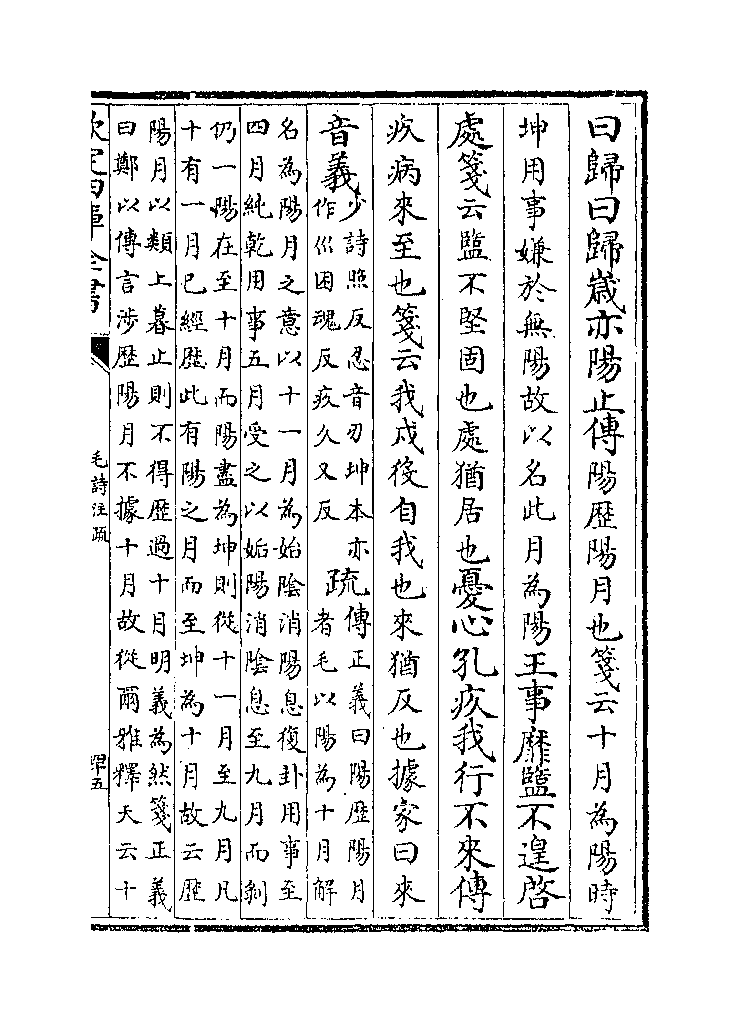 曰歸曰歸歲亦陽止傳陽歷陽月也箋云十月為陽時
坤用事嫌於無陽故以名此月為陽王事靡盬不遑啓
處箋云盬不堅固也處猶居也憂心孔疚我行不來傳
疚病來至也箋云我戍役自我也來猶反也據家曰來
音義少詩照反忍音刃坤本亦
作巛困魂反疚久又反
疏傳正義曰陽歷陽月
者毛以陽為十月解
名為陽月之意以十一月為始陰消陽息復卦用事至
四月純乾用事五月受之以姤陽消陰息至九月而剝
仍一陽在至十月而陽盡為坤則從十一月至九月凡
十有一月已經歷此有陽之月而至坤為十月故云歷
陽月以類上暮止則不得歷過十月明義為然箋正義
曰鄭以傳言涉歷陽月不據十月故從爾雅釋天云十
欽定四庫全書
毛詩注疏
四五